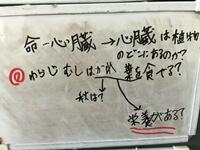 命-心臓→心臓は植物
のどこにあるのか?
@わらじむしはがれ葉を食べる?
秋は?
栄養がある?